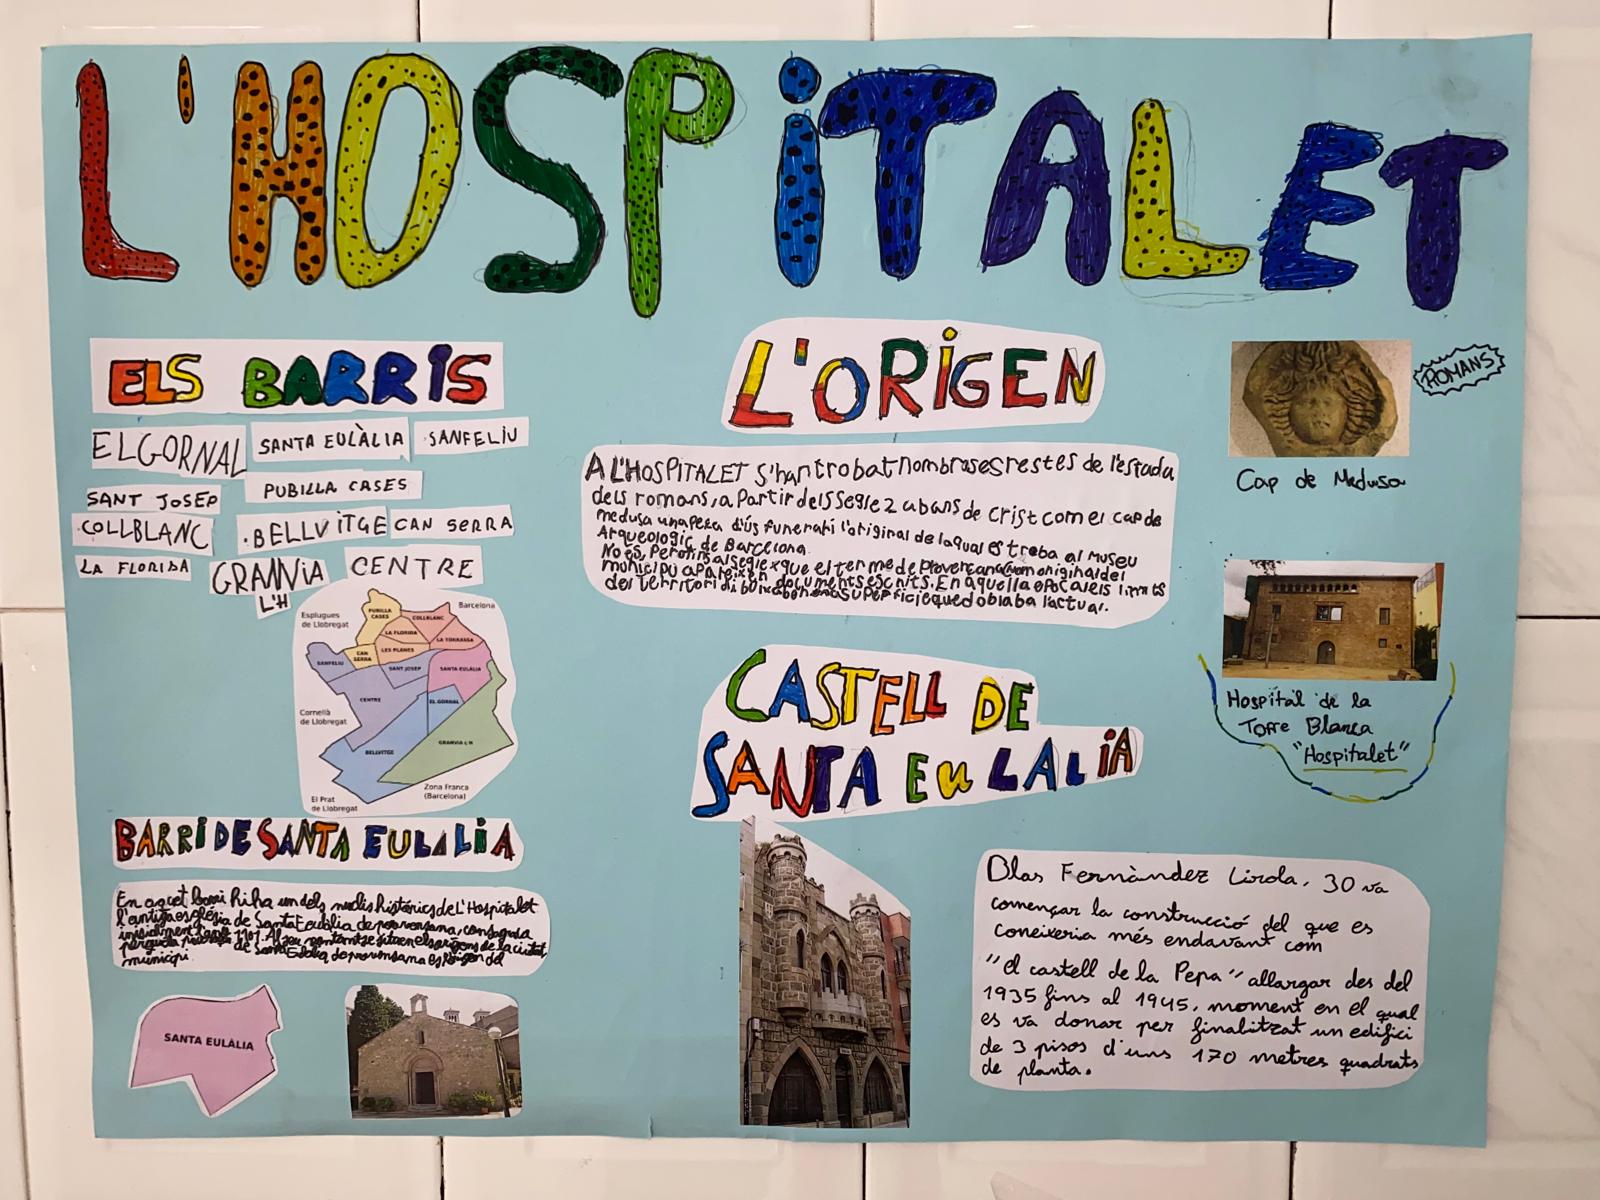 L'HOSPiTALET
ELS BARRiS
EL GORNAL
SANTA EULÀLIA
SANFELIU
SANT JOSEP
PUBILLA CASES
COLLBLANC
.BELLViTGE
CAN SERRA
LA FLORIDA
GRANViA
L'H
CENTRE
Esplugues
de Llobregat
Barcelona
PUBILLA
CASES
COLLBLANC
LA FLORIDA
LA TORRASSA
CAN
SERRA
LES PLANES
SANFELIU
SANT JOSEP
SANTA EULÀLIA
CENTRE
EL GORNAL
Cornellà
de Llobregat
GRANVIA L'H
BELLVITGE
Zona Franca
(Barcelona)
El Prat
de Llobregat
BARRi DE SANTA EULALiA
En aqcet barri hi ha un dels nuclis històrics de L'Hospitalet
l'antiga església de Santa Eulàlia de provensana, consagrada
inicialment l'any 1101. Al seu
de Santa Eulàlia de provensana es l'origen del
municipi.
SANTA EULÀLIA
L'ORiGEN
A L'HOSPITALET S'han trobat nombroses restes de l'estada
dels romans, a partir dels segle 2 abans de Crist com el cap de
medusa una peça d'ús funerari l'original de la qual es troba al Museu
Arqueologic de Barcelona.
No és, però fins al segle x que el terme de Provençana nom original del
municipi apareix en documents escrits. En aquella epoca els limits
del territori dibuixaben una superficie que doblaba l'actual.
CASTELL DE
SANTA EuLALiA
Blas Fernàndez Lirola, 30 va
començar la construcció del que es
coneixeria més endavant com
"el castell de la Pepa" allargar des del
1935 fins al 1945, moment en el qual
es va donar per finalitzat un edifici
de 3 pisos d'uns 170 metres quadrats
de planta.
ROMANS
Cap de Medusa
Hospital de la
Torre Blanca
"Hospitalet"